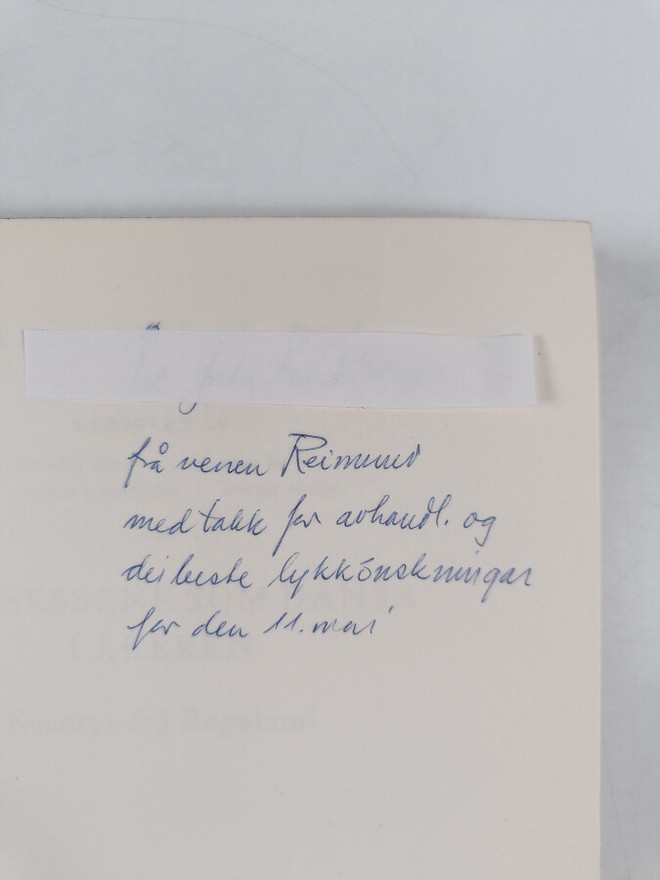 frå venen Reimund
med takk for avhandl. og
dei beste lykkönskningar
for den 11. mai
SOM DANSA
Eventyr frå Rogaland